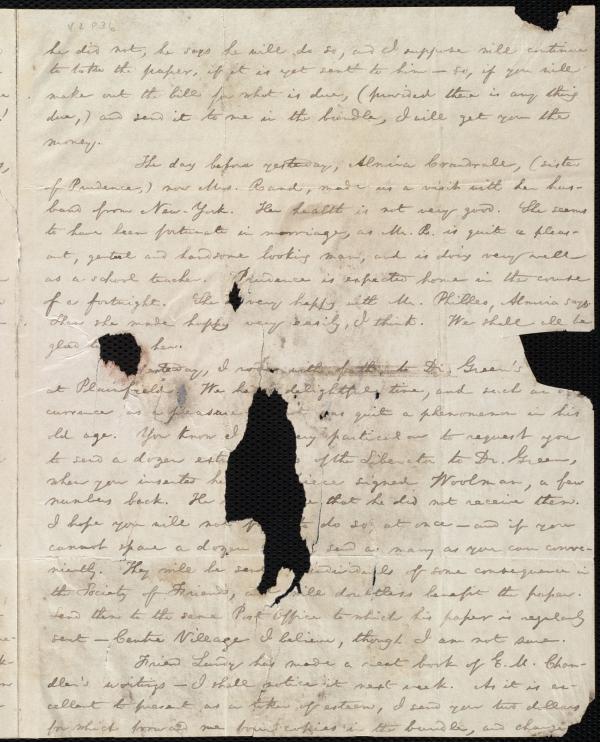 V2 P36
he did not, he says he will do so, and I suppose will continue
to take the paper, if it is yet sent to him — so, if you will
make out the bill for what is due, (provided there is any thing
due,) and send it to me in the bundle, I will get you the
money.
The day before yesterday, Almira Crandrall, (sister
of Prudence,) now Mrs. Rand, made us a visit with her hus-
band from New-York. Her health is not very good. She seems
to have been fortunate in marriage, as Mr. R. is quite a pleas-
ant, genteel and handsome looking man, and is doing very well
as a school teacher. Prudence is expected home in the course
of a fortnight. She is very happy with Mr. Philleo, Almira says.
Then she made happy very easily, I think. We shall all be
glad her.
Yesterday, I rode with father to Dr. Green's
at Plainfield. We had a delightful time, and such an oc-
currence as a pleasure was quite a phenomenon in his
old age. You know I very particular to request you
to send a dozen of the Liberator to Dr. Green,
when you inserted piece signed Woolman, a few
numbers back. He that he did not receive them.
I hope you will not to do so, at once — and if you
cannot spare a dozen send as many as you can conve-
niently. They will be individuals of some consequence in
the Society of Friends, and will doubtless benefit the paper.
Send them to the same Post Office to which his paper is regularly
sent — Centre Village I believe, though I am not sure.
Friend Lundy has made a neat book of E. M. Chan-
dler's writings — I shall notice it next week. As it is ex-
cellent to present as a token of esteem, I send you two dollars
for which forward me bound copies in the bundle, and charge